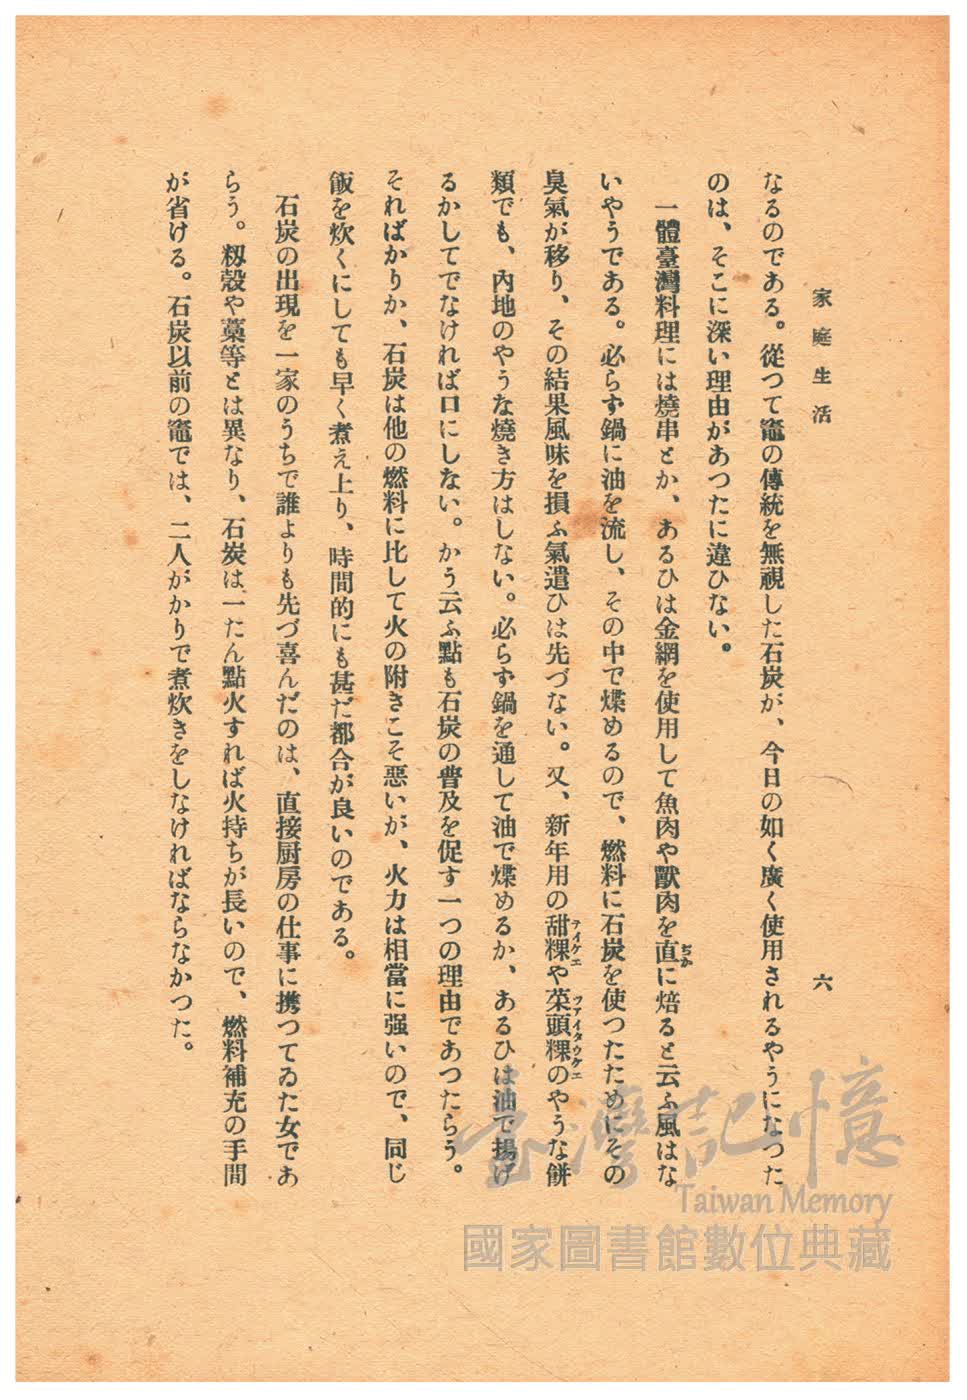 家庭生活
六
なるのである。從つて竈の傳統を無視した石炭が、今日の如く廣く使用されるやうになつた
のは、そこに深い理由があつたに違ひない。
一體臺灣料理には燒串とか、あるひは金網を使用して魚肉や獸肉を直に焙ると云ふ風はな
ぢか
いやうである。必らず鍋に油を流し、その中で煠めるので、燃料に石炭を使つたためにその
臭氣が移り、その結果風味を損ふ氣遣ひは先づない。又、新年用の甜粿や菜頭粿のやうな餅
テイケエ
ツアイタウケエ
類でも、內地のやうな燒き方はしない。必らず鍋を通して油で煠めるか、あるひは油で揚げ
るかしてでなければ口にしない。かう云ふ點も石炭の普及を促す一つの理由であつたらう。
そればかりか、石炭は他の燃料に比して火の附きこそ惡いが、火力は相當に强いので、同じ
飯を炊くにしても早く煮え上り、時間的にも甚だ都合が良いのである。
石炭の出現を一家のうちで誰よりも先づ喜んだのは、直接厨房の仕事に携つてゐた女であ
らう。籾殼や藁等とは異なり、石炭は一たん點火すれば火持ちが長いので、燃料補充の手間
が省ける。石炭以前の竈では、二人がかりで煮炊きをしなければならなかつた。
臺灣記憶
Taiwan Memory
國家圖書館數位典藏